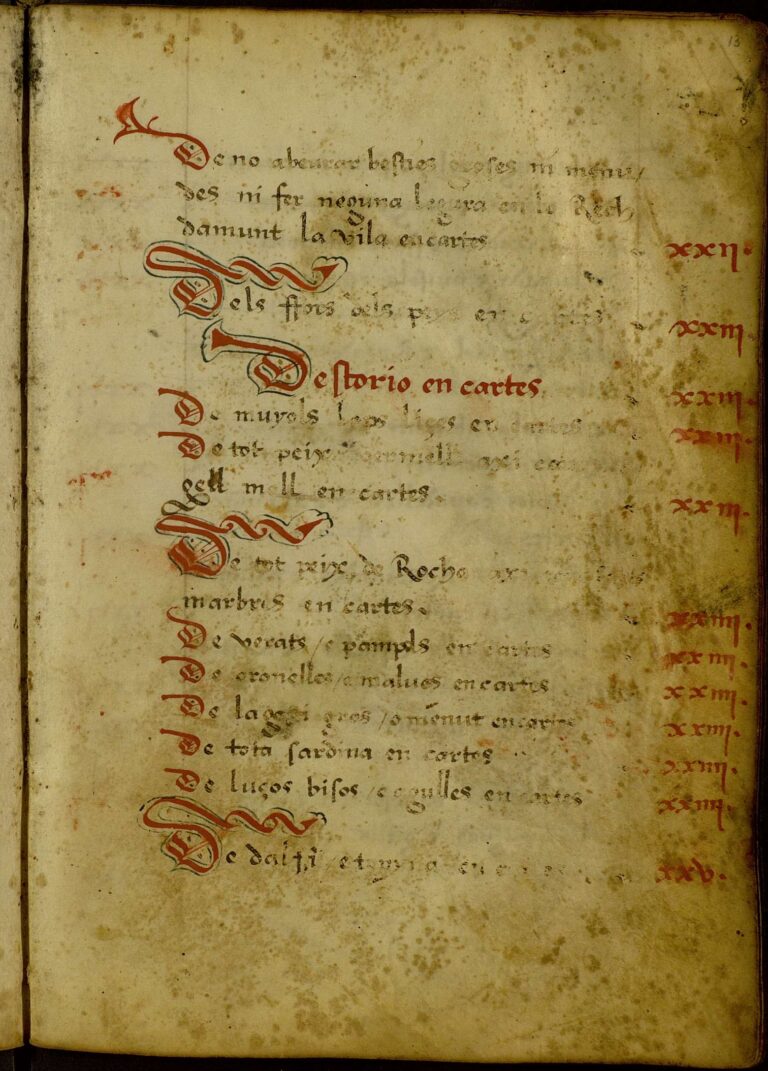 13
De no abeurar besties groses ni menu/
des ni fer neguna legura en lo Rech
damunt la vila en cartes xxii.
Dels ffors dels peys en cartes xxiii.
De storio en cartes xxiii.
De muyols lops liçes en cartes xxiii.
De tot peix vermell axi com
gell moll en cartes. xxiii.
De tot peix de Rocha axi
marbres en cartes. xxiiii.
De verats / e pampols en cartes xxiiii.
De oronelles / e malues en cartes xxiiii.
De gros / o menut en cartes xxiiii.
De tota sardina en cartes xxiiii.
De luços bisos / e agulles en cartes xxiiii.
De dalfi / e tonyna en xxv.